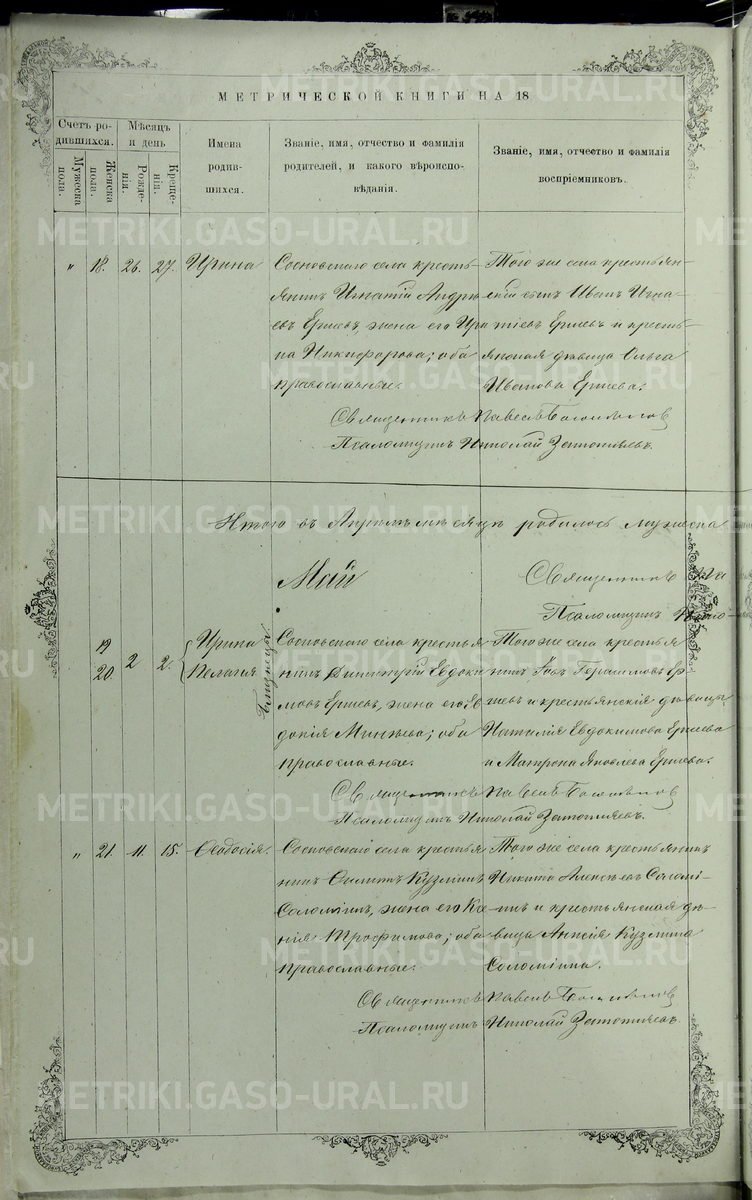 МЕТРИЧЕСКОЙ КНИГИ НА 18
Счетъ ро-
дившихся.
Мужеска
пола.
Женска
пола.
Мѣсяцъ
и день
Рожде-
нія.
Креще-
нія.
Имена
родив-
шихся.
Званіе, имя, отчество и фамилія
родителей, и какого вѣроиспо-
вѣданія.
Званіе, имя, отчество и фамилія
воспріемниковъ.
" 18. 26. 27. Ирина
Сосновскаго села кресть-
янинъ Игнатій Андре-
евъ Ершевъ, жена его Ири-
на Никифорова; оба
православные.
Того же села крестьян-
скій сынъ Иванъ Игна-
тіевъ Ершевъ и кресть-
янская дѣвица Ольга
Иванова Ершева.
Священникъ Павелъ
Псаломщикъ Николай
Итого въ Апрѣлѣ мѣсяцѣ родилось мужеска
Май
Священникъ Па
Псаломщикъ Нико-
19
20. 2 2. Ирина
Пелагія
Близнецы.
Сосновскаго села крестья-
нинъ Димитрій Евдоки-
мовъ Ершевъ, жена его Ев-
докія Минѣева; оба
православные.
Того же села крестья-
нинъ Іовъ Герасимовъ Ер-
шевъ и крестьянскія дѣвицы
Наталія Евдокимова Ершева
и Матрона Яковлева Ершева.
Священникъ Павелъ
Псаломщикъ Николай
" 21. 11. 15. Ѳеодосія.
Сосновскаго села крестья-
нинъ Кузминъ
Соломіинъ, жена его
Трофимова; оба
православные.
Того же села крестьянинъ
Никита Алексѣевъ Соломі-
инъ и крестьянская дѣ-
вица Анисія Кузмина
Соломіина.
Священникъ Павелъ
Псаломщикъ Николай
METRIKI.GASO-URAL.RU